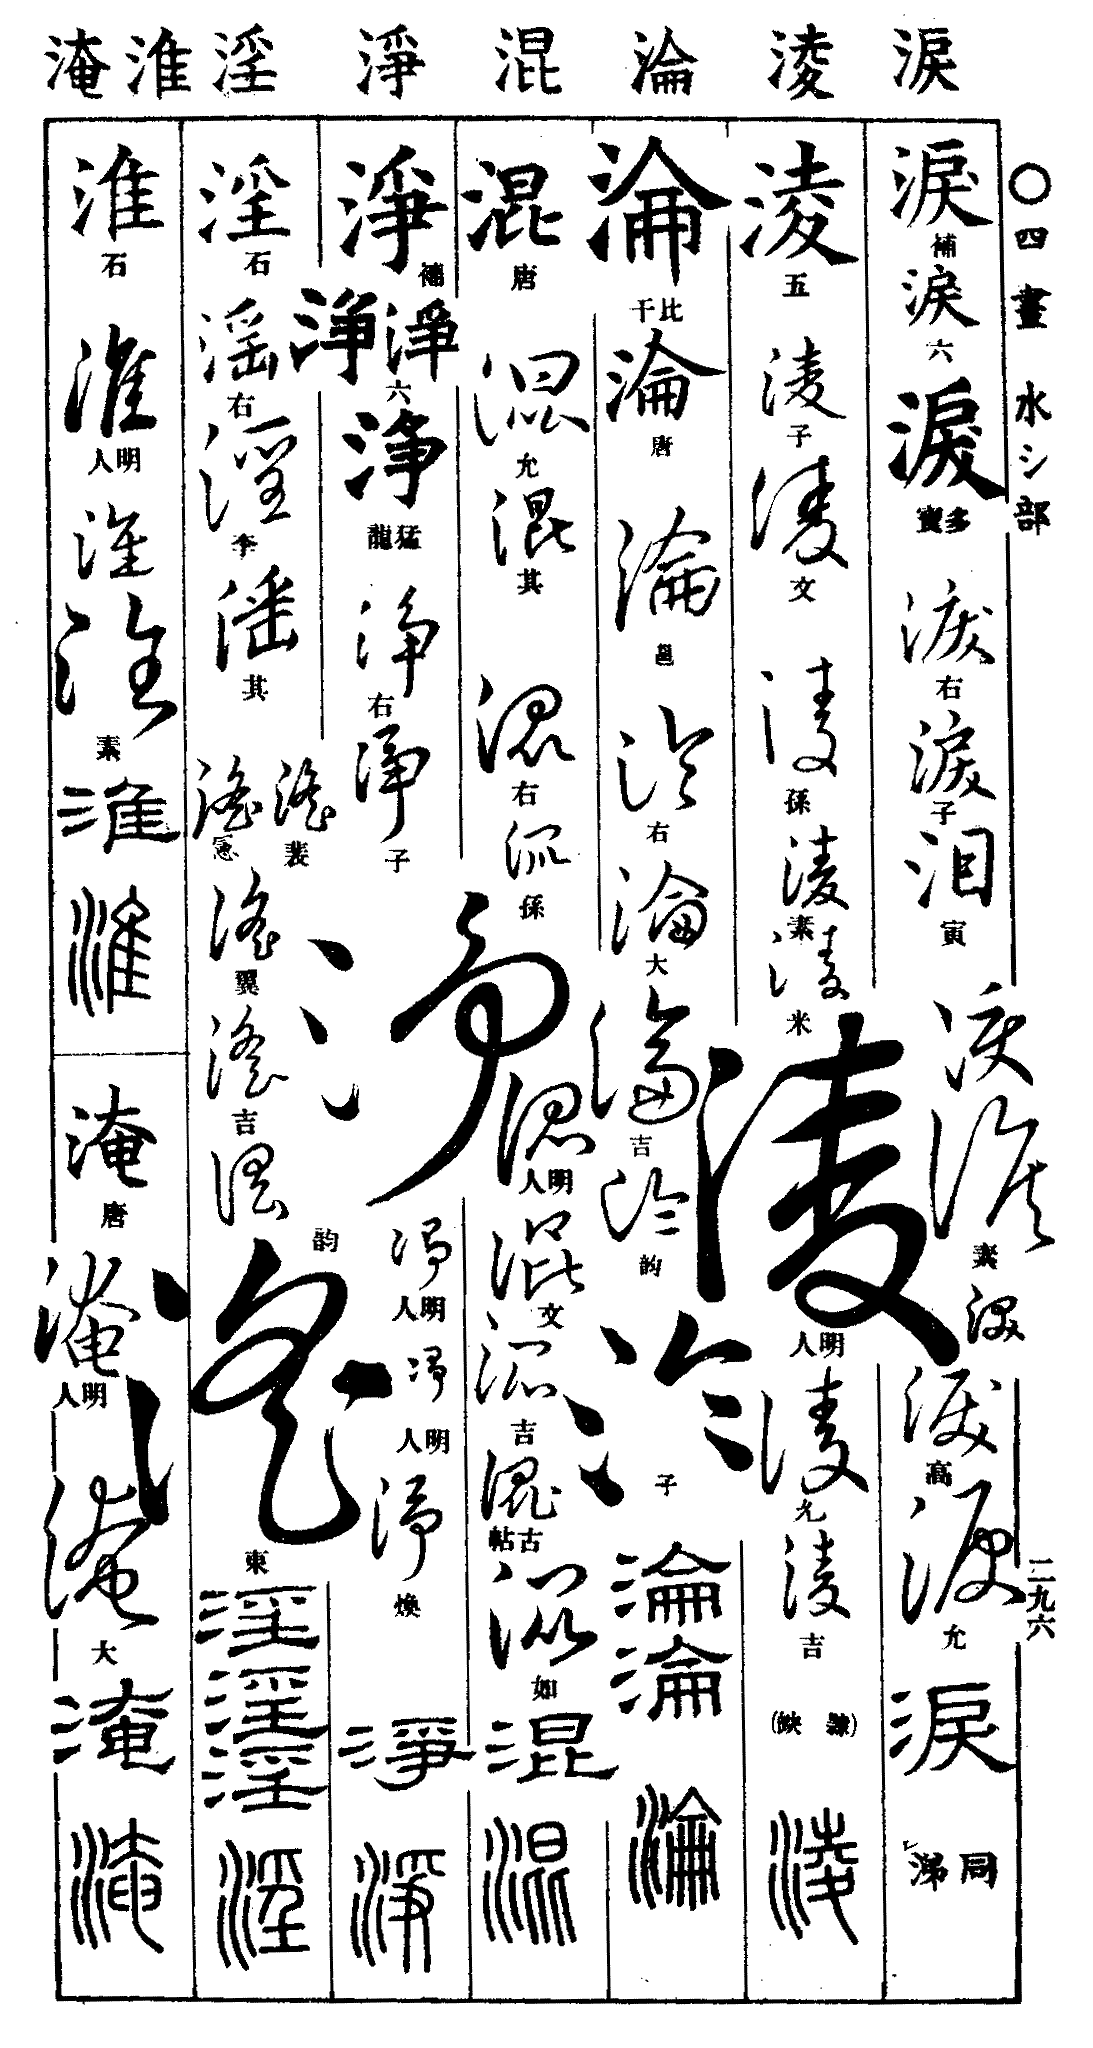 淚 淩 淪 混 淨 淫 淮 淹
〇四畫 水氵部
二九六
淚 補
淚 六
淚 多寶
淚 右
淚 子
泪 寅
淚
淚 素
淚
淚 高
淚 允
淚
同 涕
淩 五
淩 子
淩 文
淩 孫
淩 素
淩 米
淩 明人
淩 允
淩 吉
(隸 缺)
淩
淪 比干
淪 唐
淪 邕
淪 右
淪 大
淪 吉
淪 韵
淪 子
淪
淪
淪
混 唐
混 允
混 其
混 右
混 孫
混 明人
混 文
混 吉
混 古帖
混 如
混
混
淨 補
淨 淨 六
淨 猛龍
淨 右
淨 子
淨
淨 明人
淨 明人
淨 煥
淨
淨
淫 石
淫 右
淫 李
淫 其
淫 裴
淫
淫 翼
淫 吉
淫 韵
淫 東
淫
淫
淫
淫
淮 石
淮 明人
淮
淮 素
淮
淮
淹 唐
淹 明人
淹 大
淹
淹